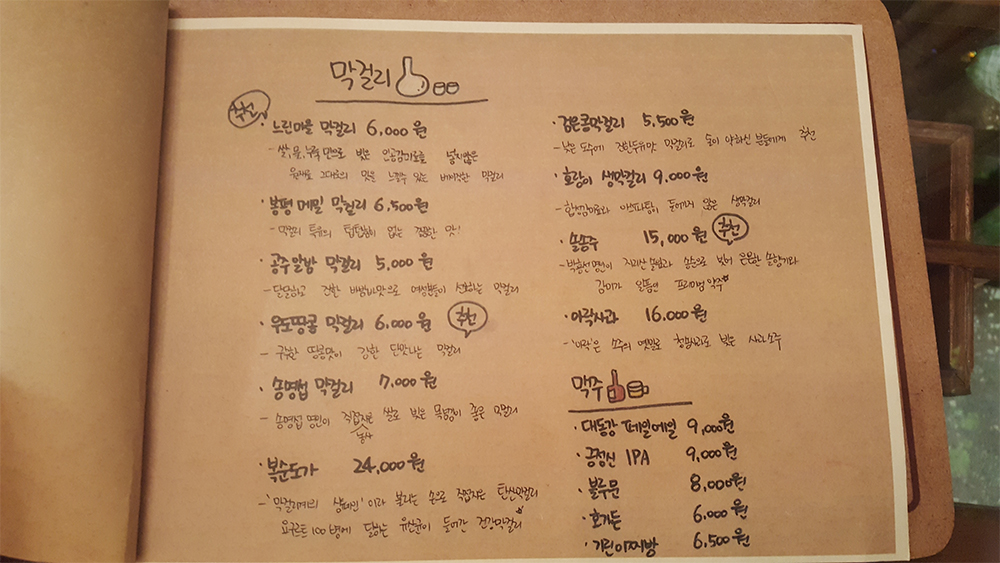 막걸리
추천
· 느린마을 막걸리 6,000원
- 쌀, 물, 누룩만으로 빚은 인공감미료를 넣지않은
원재료 그대로의 맛을 느낄수 있는 베이직한 막걸리
· 봉평 메밀 막걸리 6,500원
- 막걸리 특유의 텁텁함이 없는 깔끔한 맛!
· 공주 알밤 막걸리 5,000원
- 달달하고 진한 바밤바맛으로 여성분들이 선호하는 막걸리
· 우도땅콩 막걸리 6,000원 추천
- 구수한 땅콩맛이 강한 단맛나는 막걸리
· 송명섭 막걸리 7,000원
- 송명섭 명인이 직접지은 쌀로 빚은 목넘김이 좋은 막걸리
농사
· 복순도가 24,000원
- '막걸리계의 샴페인' 이라 불리는 손으로 직접빚은 탄산막걸리
요구르트 100병에 달하는 유산균이 들어간 건강막걸리
· 검은콩막걸리 5,500원
- 낮은 도수에 진한두유맛 막걸리로 술이 약하신 분들에게 추천
· 호랑이 생막걸리 9,000원
- 합성감미료와 아스파탐이 들어가지 않은 생막걸리
· 솔송주 15,000원 추천
- 박흥선명인이 지리산 솔잎과 송순으로 빚어 은은한 솔향기와
감미가 일품인 프리미엄 약주
· 이락사과 16,000원
- '이락'은 소주의 옛말로 청송사과로 빚은 사과소주
맥주
· 대동강 페일에일 9,000원
· 긍정신 IPA 9,000원
· 블루문 8,000원
· 호가든 6,000원
· 기린이찌방 6,500원